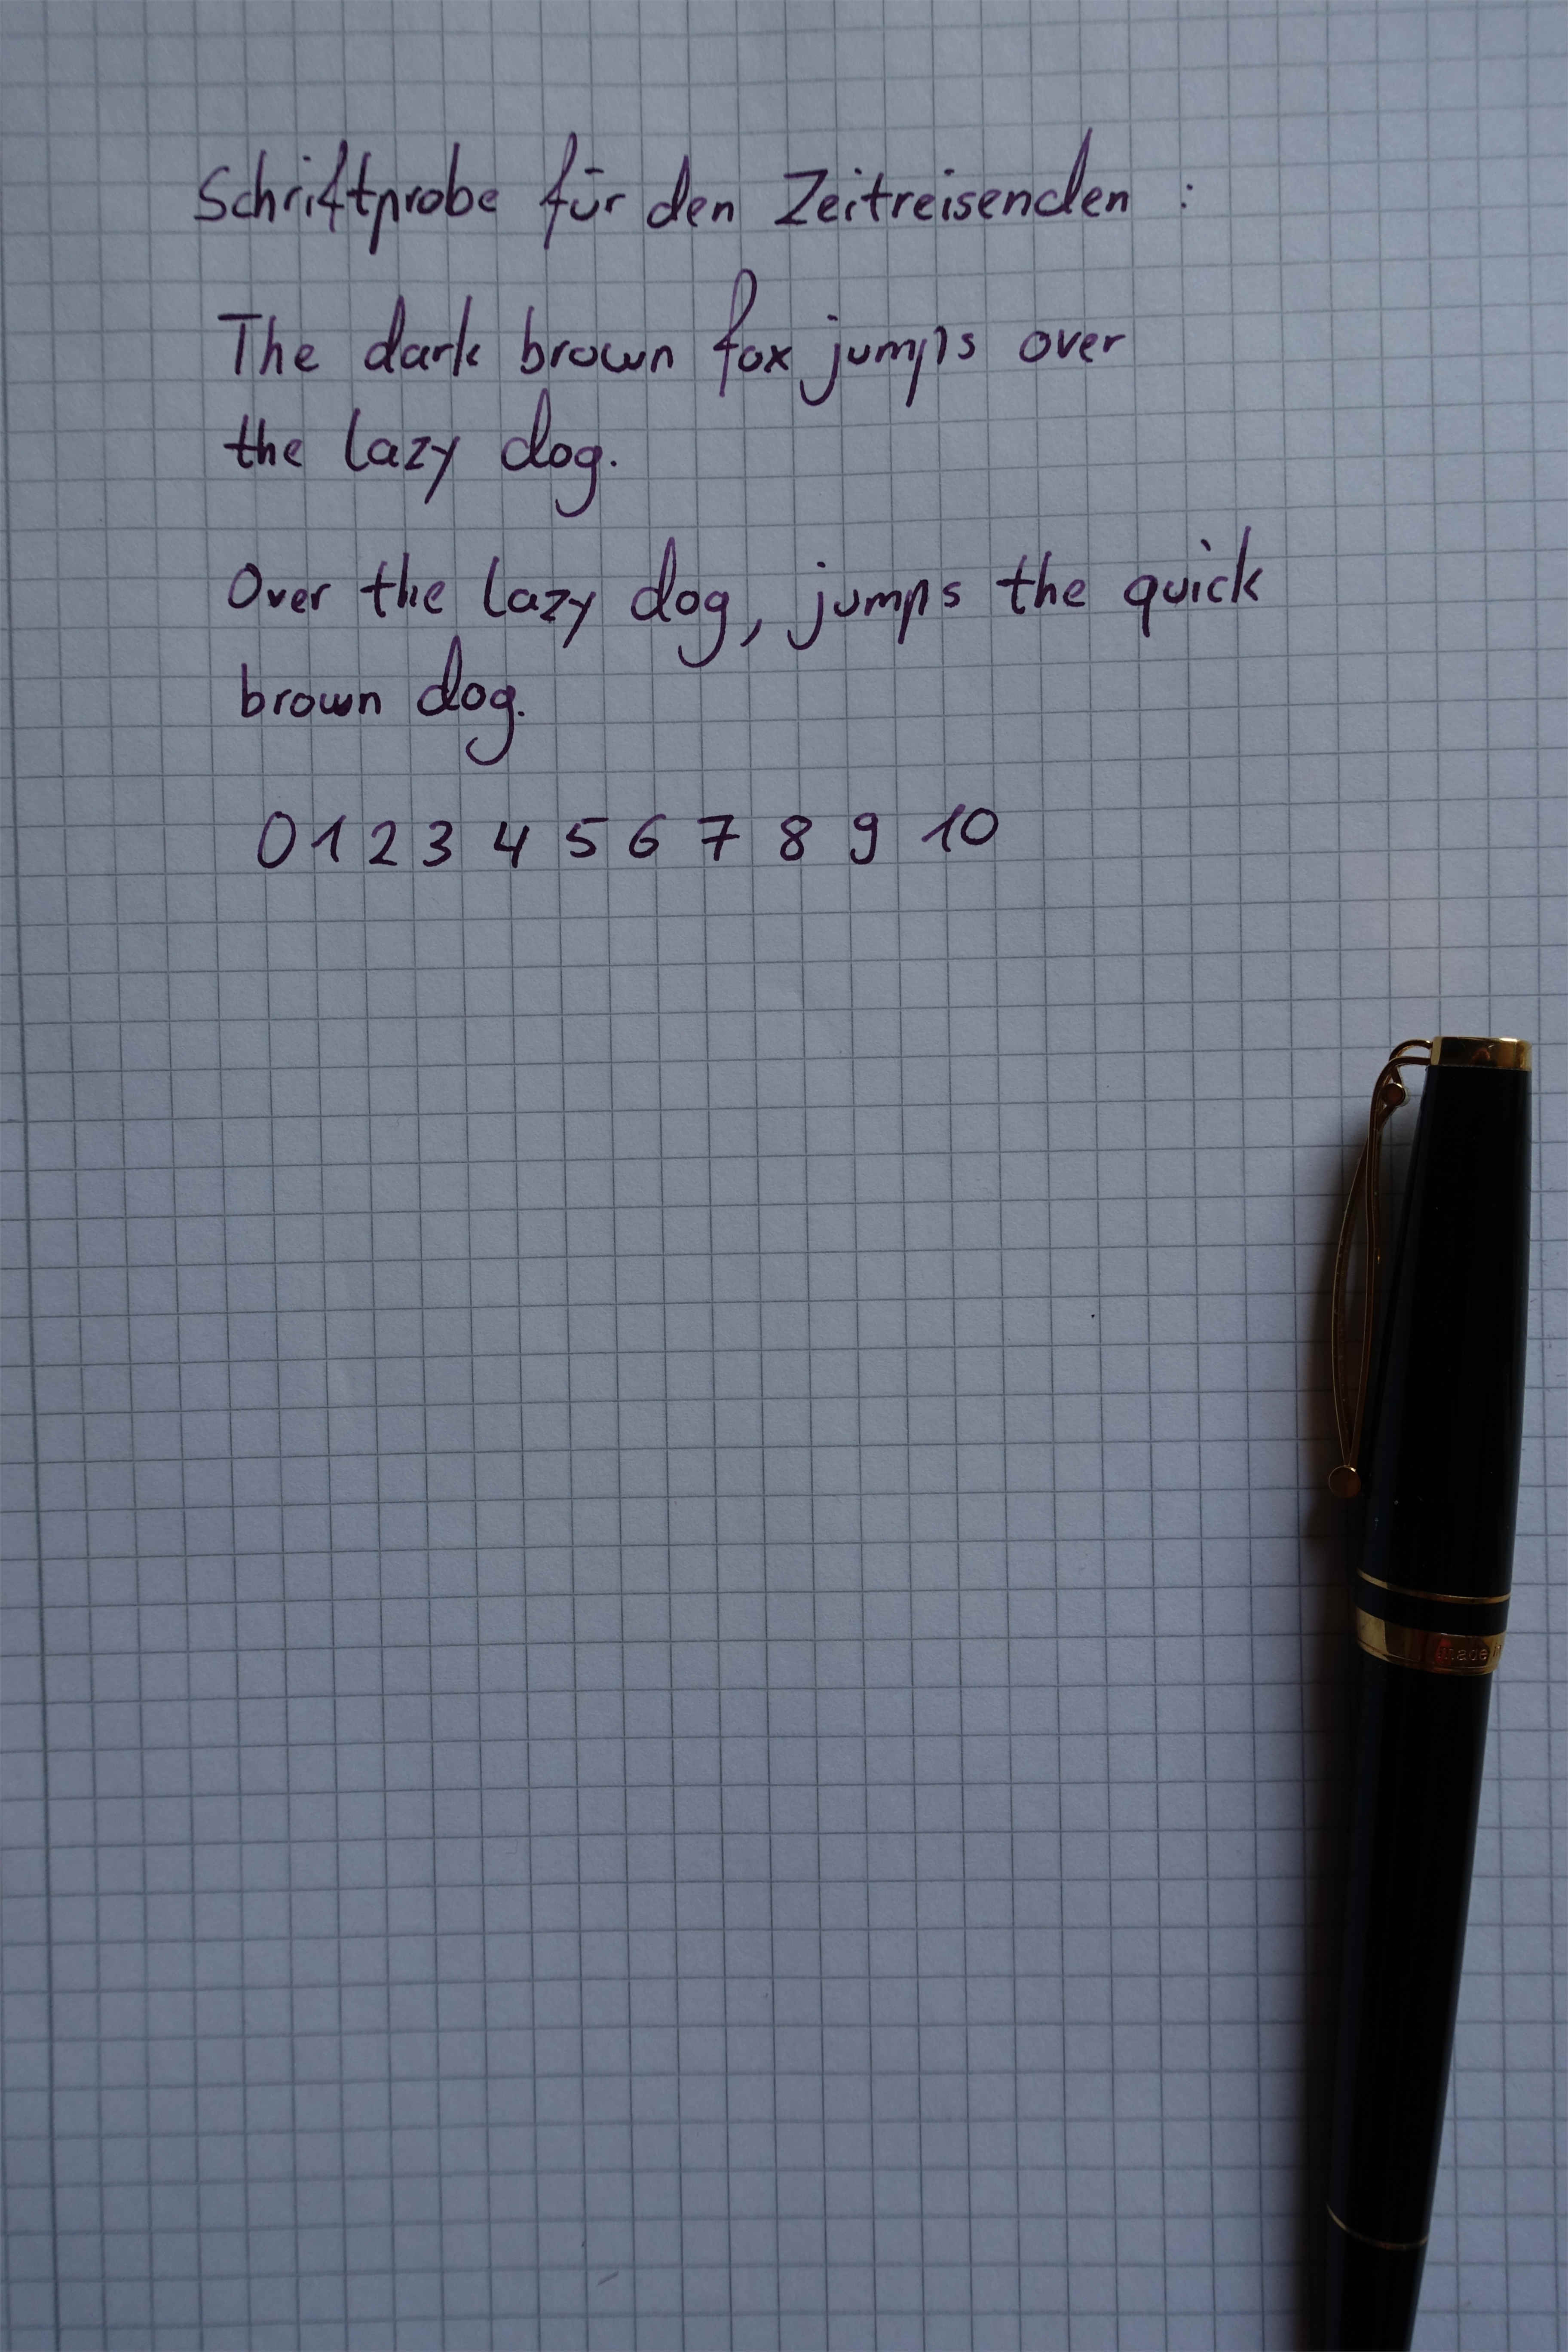 Schriftprobe für den Zeitreisenden :
The dark brown fox jumps over
the lazy dog.
Over the lazy dog, jumps the quick
brown dog.
0 1 2 3 4 5 6 7 8 9 10
made